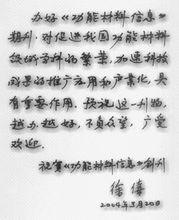 办好《功能材料信息》
期刊，对促进我国功能材料
领域学科的繁荣，加速科技
成果的推广应用和产业化，具
有重要作用。预祝这一刊物，
越办越好，不负众望，广受
欢迎。
祝贺《功能材料信息》创刊
徐僖
2004年3月20日